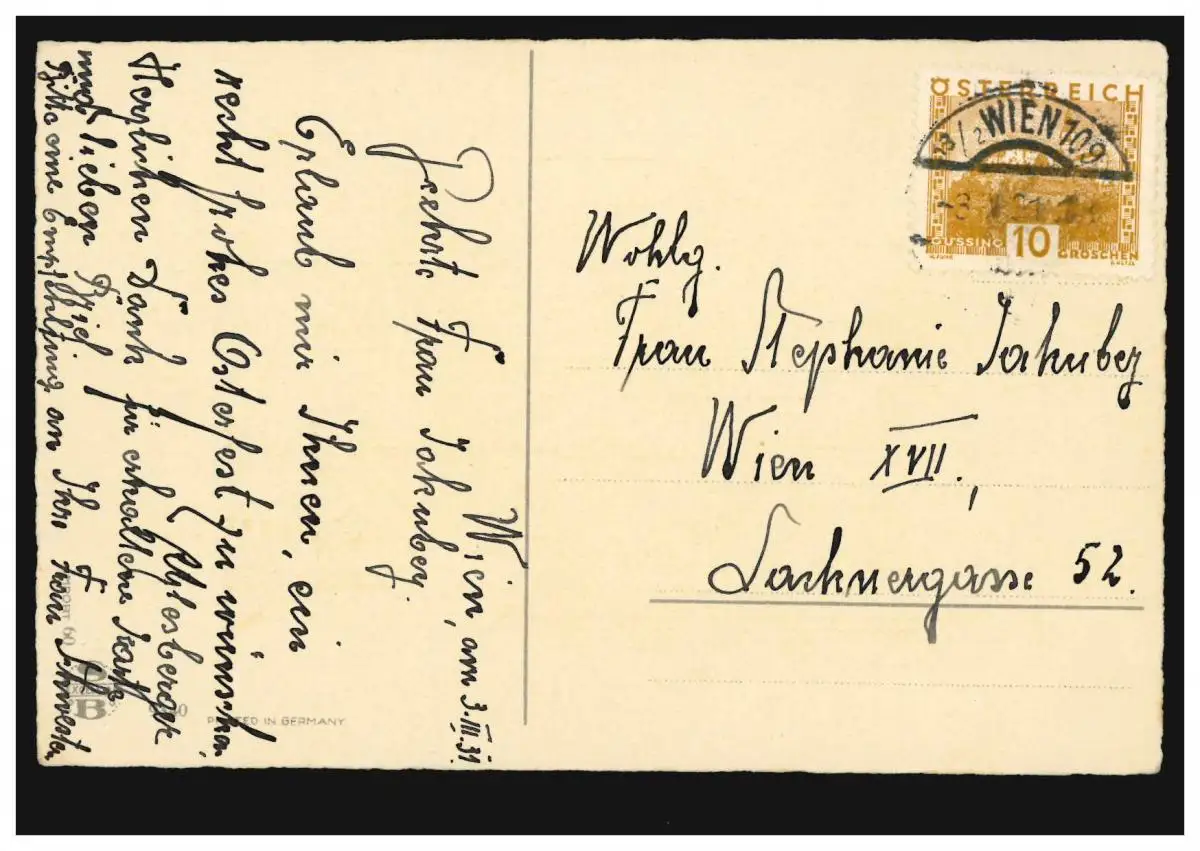 Wien, am 3.III.31
Geehrte Frau Jakuber.
Erlaub mir Ihnen, ein
recht frohes Osterfest zu wünschen,
Herzlichen Dank für erhaltene
und lieben Brief.
Bitte eine Empfehlung an Ihre Frau Schwester
ÖSTERREICH
23/2 WIEN 109
GÜSSING 10 GROSCHEN
Wohlg.
Frau Stephanie Jakuber
Wien XVII.,
Lacknergasse 52.
PRINTED IN GERMANY
B